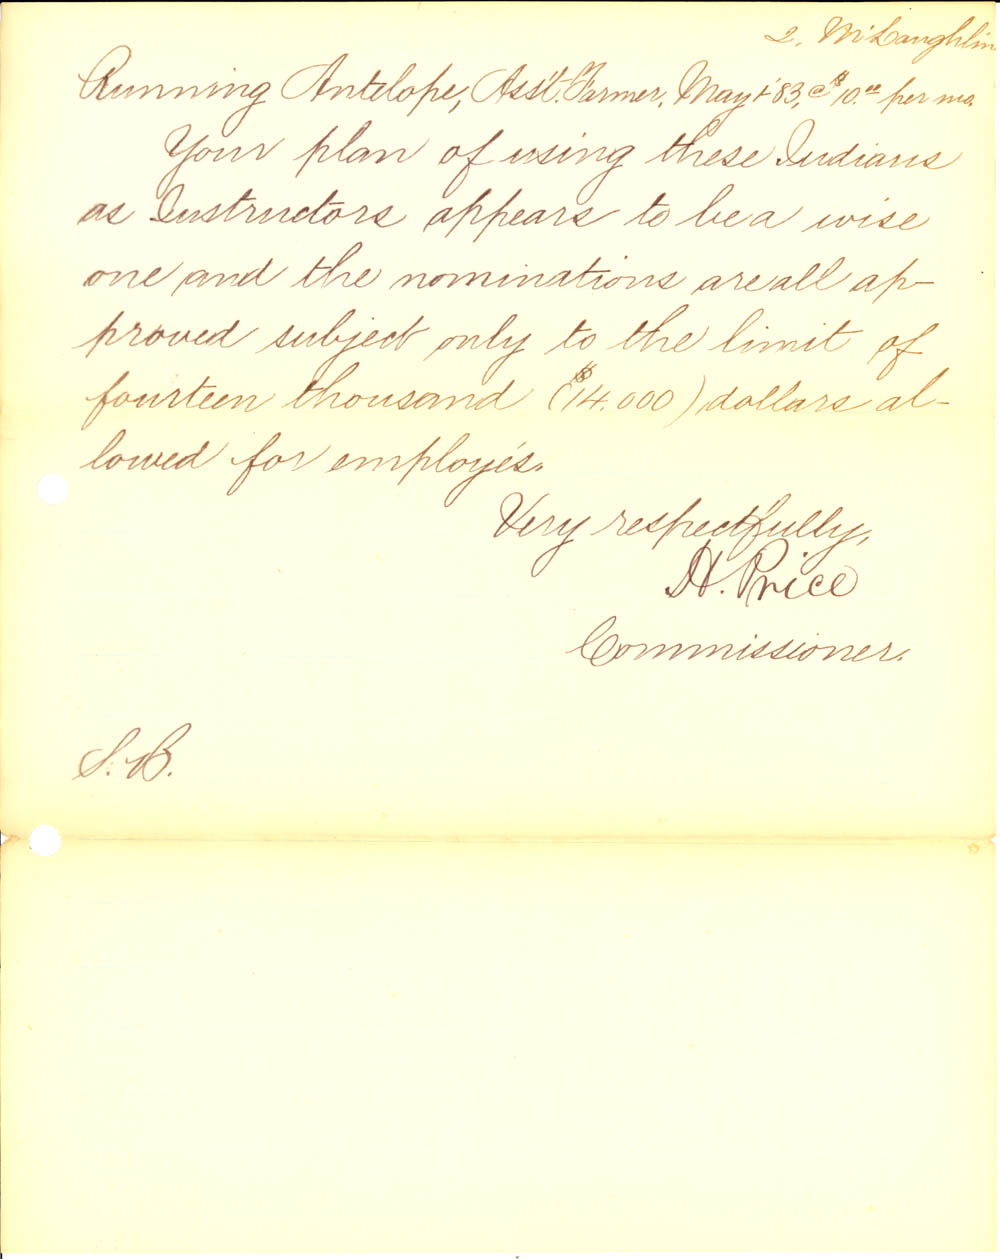 2. McLaughlin
Running Antelope, Ass't. Farmer, May 1 '83, @ $10.00 per mo.
Your plan of using these Indians
as Instructors appears to be a wise
one and the nominations are all ap-
proved subject only to the limit of
fourteen thousand ($14.000) dollars al-
lowed for employés.
Very respectfully,
H. Price
Commissioner.
S. B.